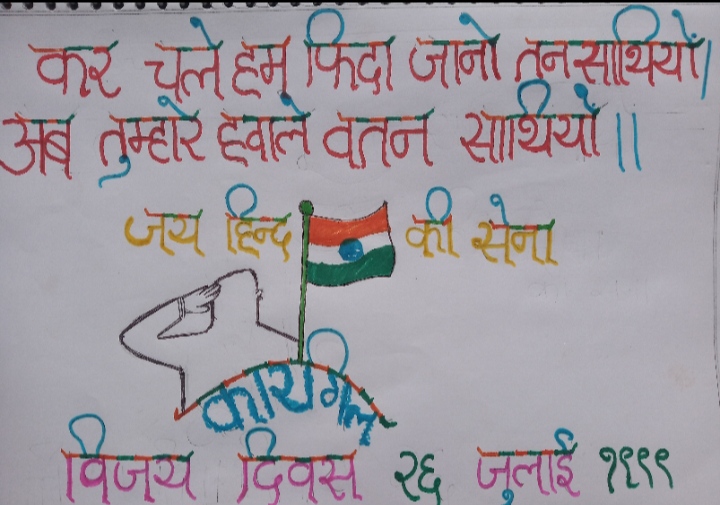 कर चले हम फिदा जानो तन साथियों।
अब तुम्हारे हवाले वतन साथियों॥
जय हिन्द की सेना
कारगिल
विजय दिवस २६ जुलाई १९९९